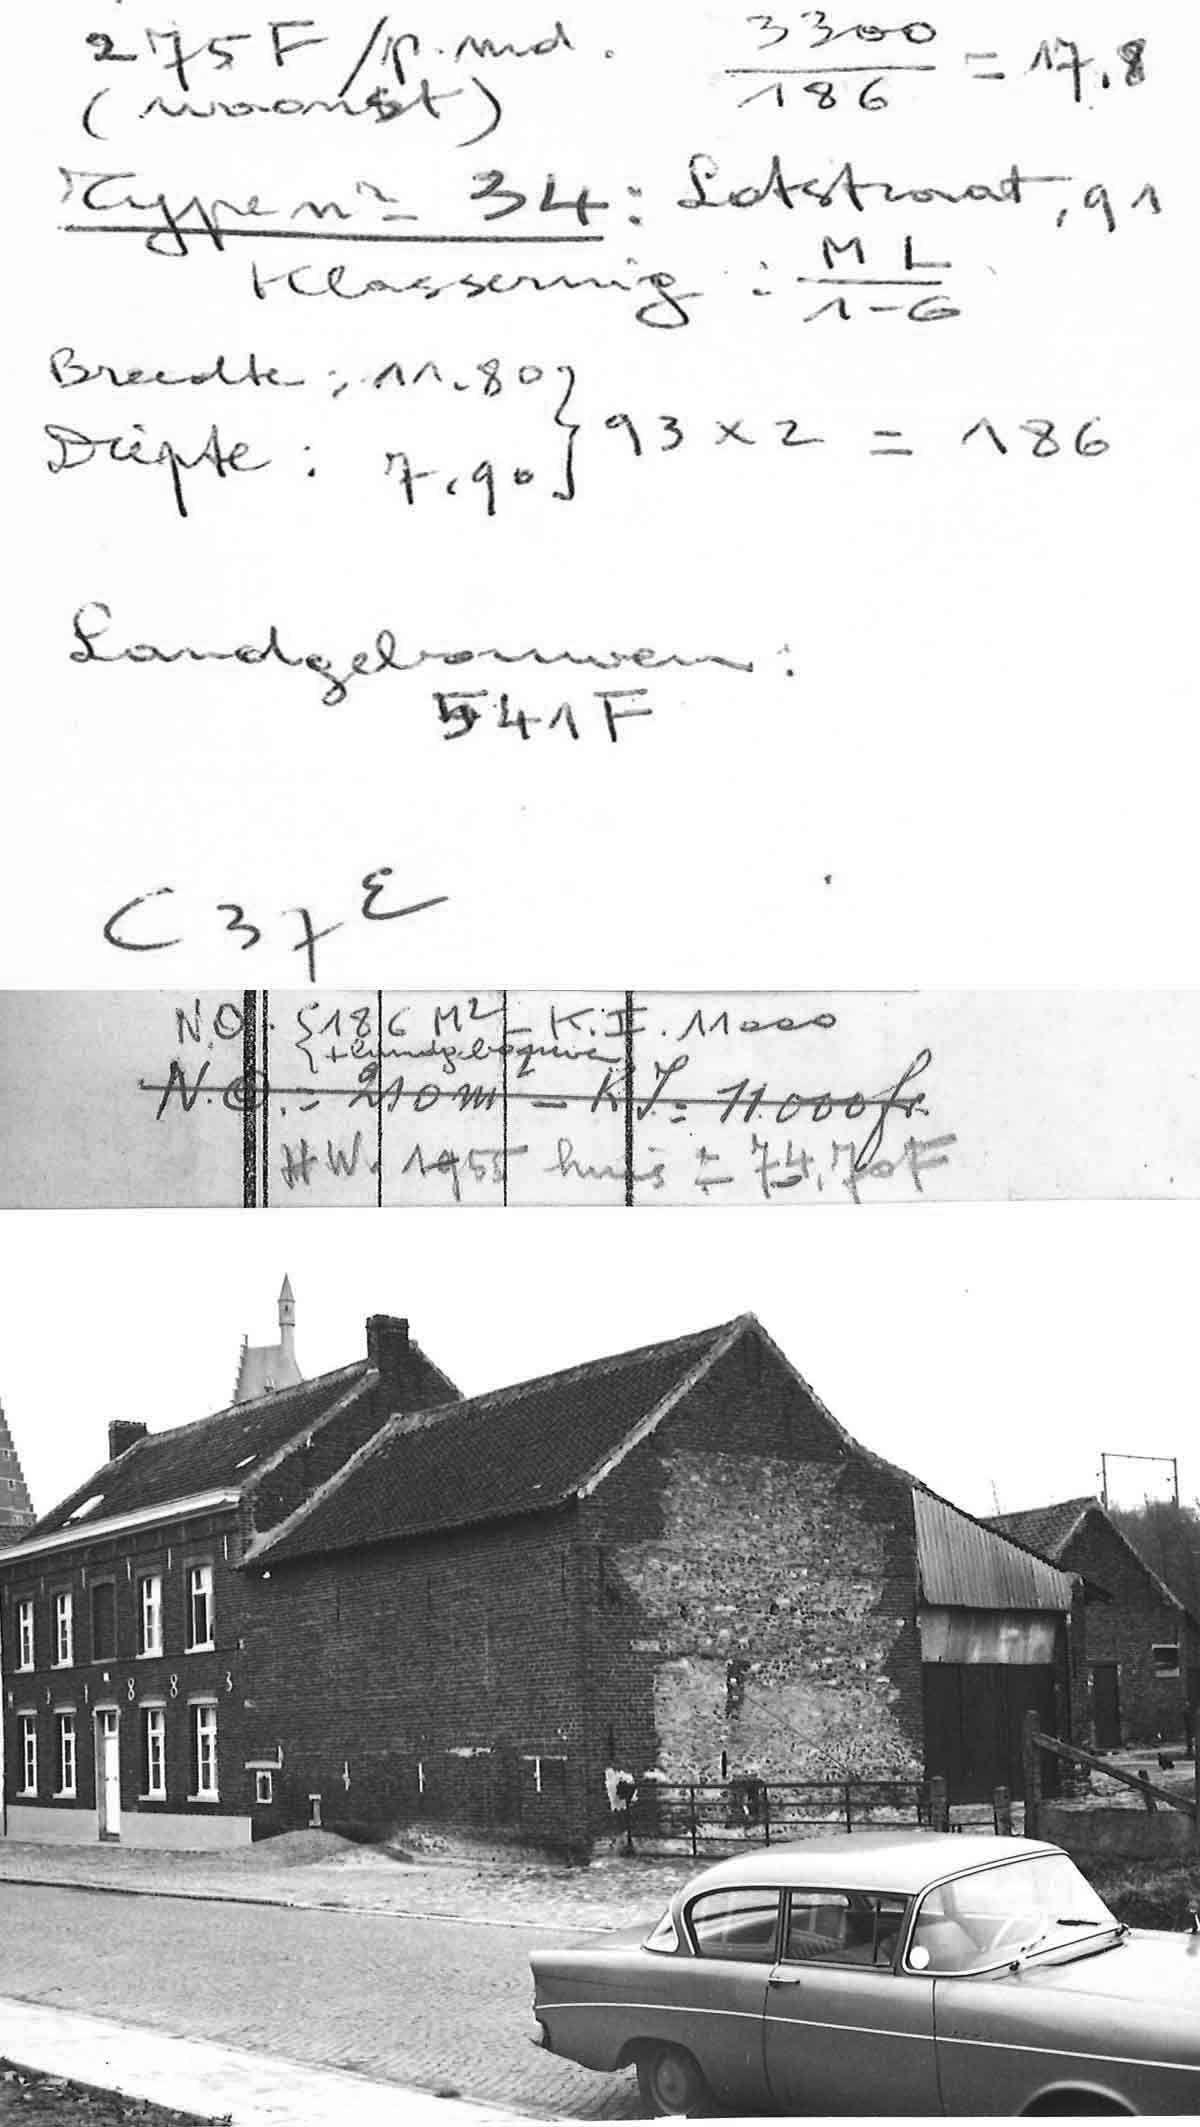 275 F / p. md. 3300 / 186 = 17,8
(woonst)
Type n° 34 : Lotstraat, 91
Klassering : M L / 1-6
Breedte : 11.80 } 93 x 2 = 186
Diepte : 7.90
Landgebouwen :
541 F
C 37 E
N.O. { 186 M² - K.I. 11000
+ landgebouwen
N.O. = 210 m² - K.I. = 11.000 fr.
HW. 1955 huis = 74,70F
1 8 8 3